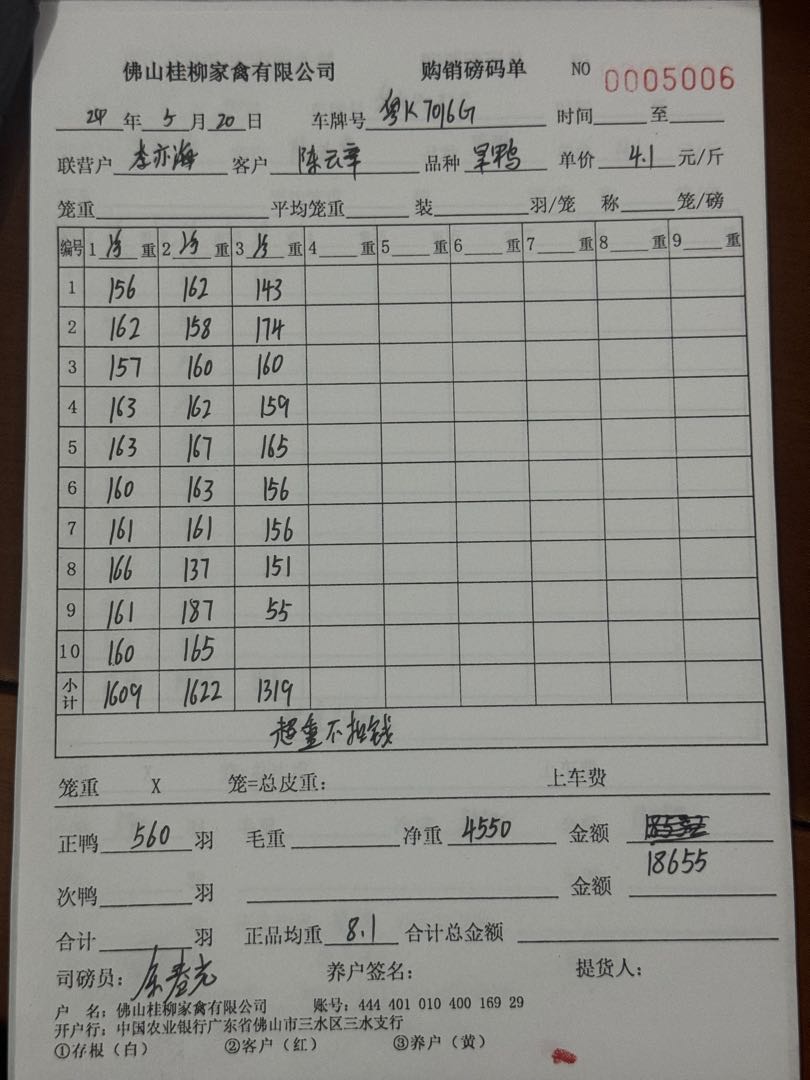 佛山桂柳家禽有限公司 购销磅码单 NO 0005006
24年5月20日 车牌号 粤K7016G 时间 至
联营户 李亦海 客户 陈云幸 品种 旱鸭 单价 4.1 元/斤
笼重 平均笼重 装 羽/笼 称 笼/磅
编号 1 净 重 2 净 重 3 净 重 4 重 5 重 6 重 7 重 8 重 9 重
1 156 162 143
2 162 158 174
3 157 160 160
4 163 162 159
5 163 167 165
6 160 163 156
7 161 161 156
8 166 137 151
9 161 187 55
10 160 165
小计 1609 1622 1319
超重不担钱
笼重 X 笼=总皮重: 上车费
正鸭 560 羽 毛重 净重 4550 金额
18655
次鸭 羽 金额
合计 羽 正品均重 8.1 合计总金额
司磅员: 养户签名: 提货人:
户 名: 佛山桂柳家禽有限公司 账号: 444 401 010 400 169 29
开户行: 中国农业银行广东省佛山市三水区三水支行
①存根(白) ②客户(红) ③养户(黄)